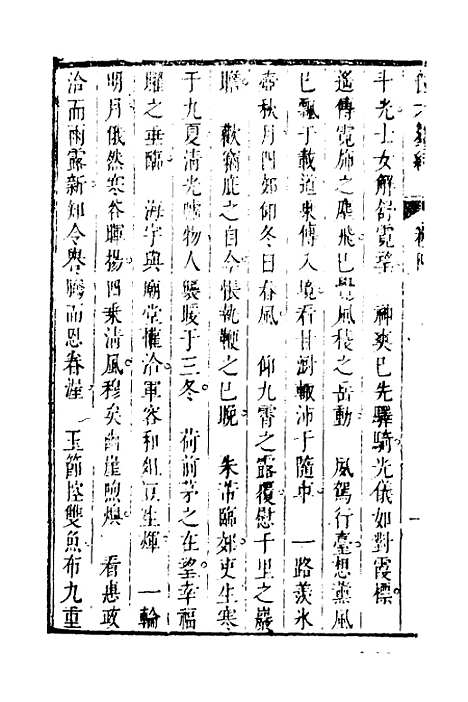 斗光士女解舒霓望　神爽已先驛騎光儀如對霞標
遙傳霓斾之塵飛已覺風裁之岳動　風駕行臺想薰風
已飄于載道東傳入境看甘澍輒沛于隨車　一路羨氷
壺秋月四郊仰冬日春風　仰九霄之露覆慰千里之巖
瞻　歡猶龐之自今悵執鞭之已晚　朱芾臨郊吏生寒
于九夏清光映物人襲暖于三冬　荷前茅之在望幸福
曜之垂臨　海宇與廟堂懽洽軍容和俎豆生煇　一輪
明月俄然寒谷暉揚四乘清風穆矣幽崖煦燠　看惠政
洽而雨露新知令譽騰而恩眷渥　玉節控雙魚布九重